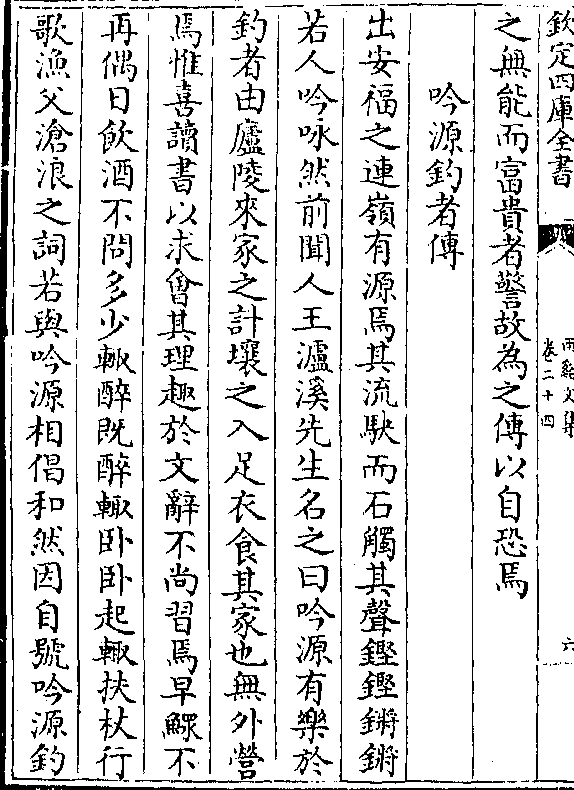 欽定四庫全書
兩谿文集
卷二十四
六
之無能而富貴者警故為之傳以自恐焉
吟源釣者傳
出安福之連嶺有源焉其流駛而石觸其聲鏗鏗鏘鏘
若人吟咏然前聞人王瀘溪先生名之曰吟源有樂於
釣者由廬陵來家之計壤之入足衣食其家也無外營
焉惟喜讀書以求會其理趣於文辭不尚習焉早鰥不
再偶日飲酒不問多少輙醉既醉輙卧卧起輙扶杖行
歌漁父滄浪之詞若與吟源相倡和然因自號吟源釣